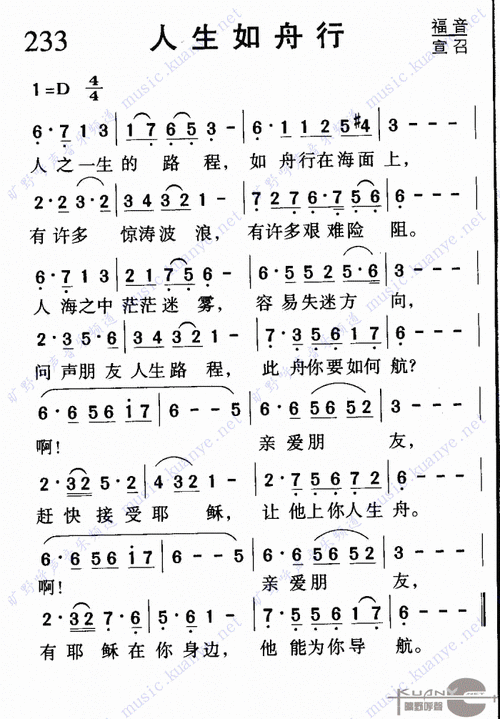 233 人生如舟行 福音
宣召
1=D 4/4
6·713 | 17653- | 6·1125#4 | 3--- |
人之一生的路程，如舟行在海面上，
2·2323 | 34321- | 7276·756 | 6--- |
有许多惊涛波浪，有许多艰难险阻。
6·713 | 21756- | 6·55255·6 | 3--- |
人海之中茫茫迷雾，容易失迷方向，
2·35·6 | 34321- | 7·35617 | 6--- |
问声朋友人生路程，此舟你要如何航?
6·65617 | 6--5 | 6·65652 | 3--- |
啊! 亲爱朋友，
2·3235·2 | 4321- | 2·75672 | 6--- |
赶快接受耶稣，让他上你人生舟。
6·65617 | 6--- | 6·65652 | 3--- |
啊! 亲爱朋友，
2·327·2 | 5·61- | 7·75617 | 6--- |
有耶稣在你身边，他能为你导航。
KUANYE.NET
旷野呼声